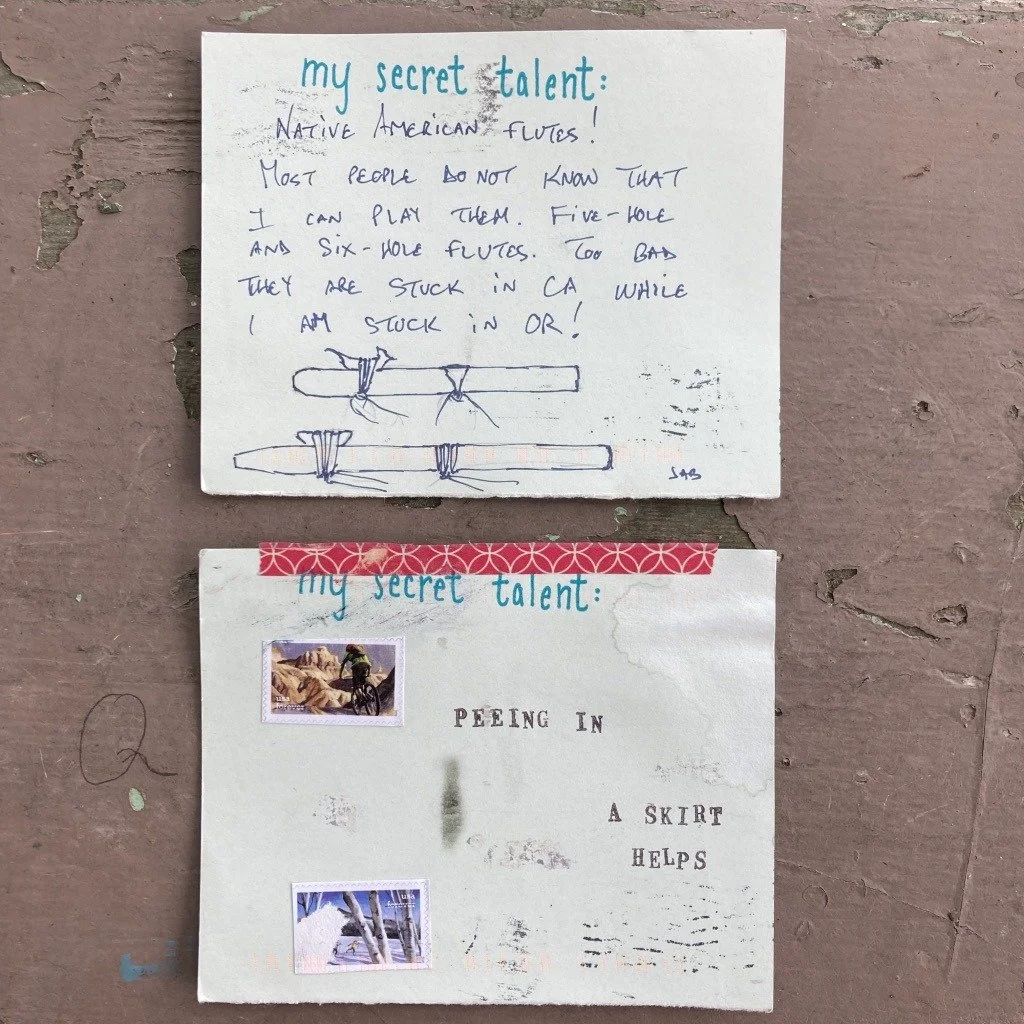 my secret talent:
NATIVE AMERICAN FLUTES!
MOST PEOPLE DO NOT KNOW THAT
I CAN PLAY THEM. FIVE-HOLE
AND SIX-HOLE FLUTES. TOO BAD
THEY ARE STUCK IN CA WHILE
I AM STUCK IN OR!
SAB
my secret talent:
USA
PEEING IN
A SKIRT
HELPS
USA
Q